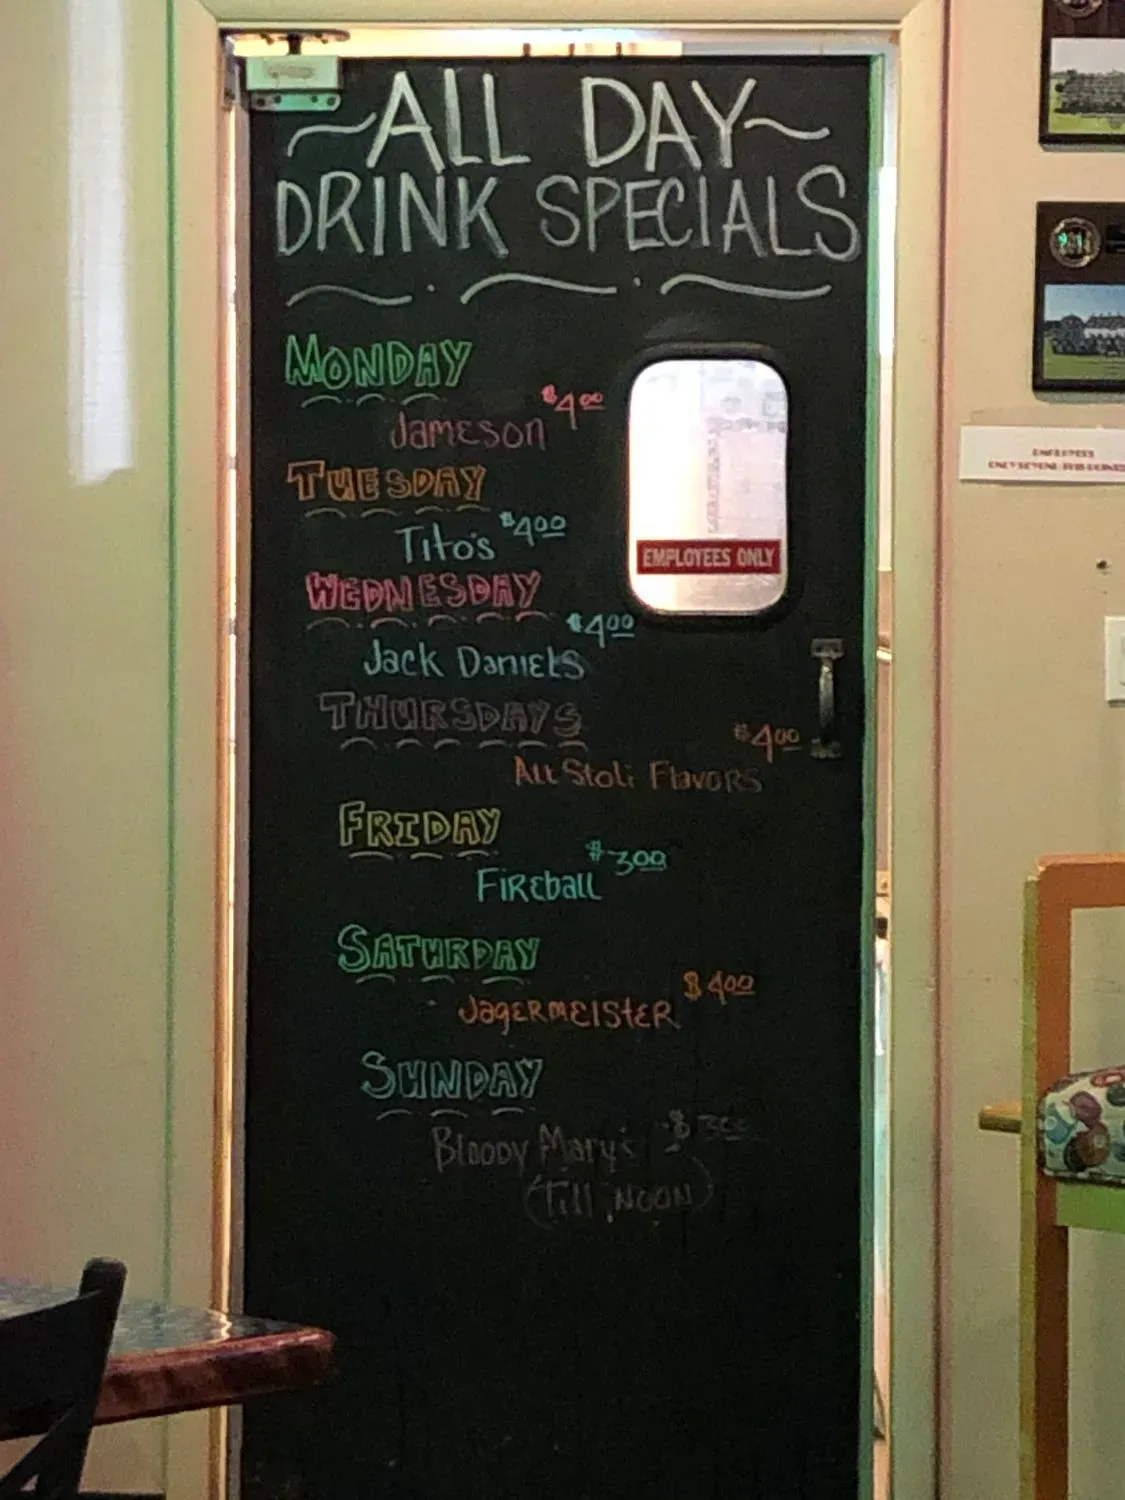 ~ALL DAY~
DRINK SPECIALS
MONDAY
Jameson $4.00
TUESDAY
Tito's $4.00
WEDNESDAY
Jack Daniels $4.00
THURSDAYS
All Stoli Flavors $4.00
FRIDAY
Fireball $3.00
SATURDAY
Jagermeister $4.00
SUNDAY
Bloody Mary's $3.00
(Till Noon)
EMPLOYEES ONLY
EMPLOYEES